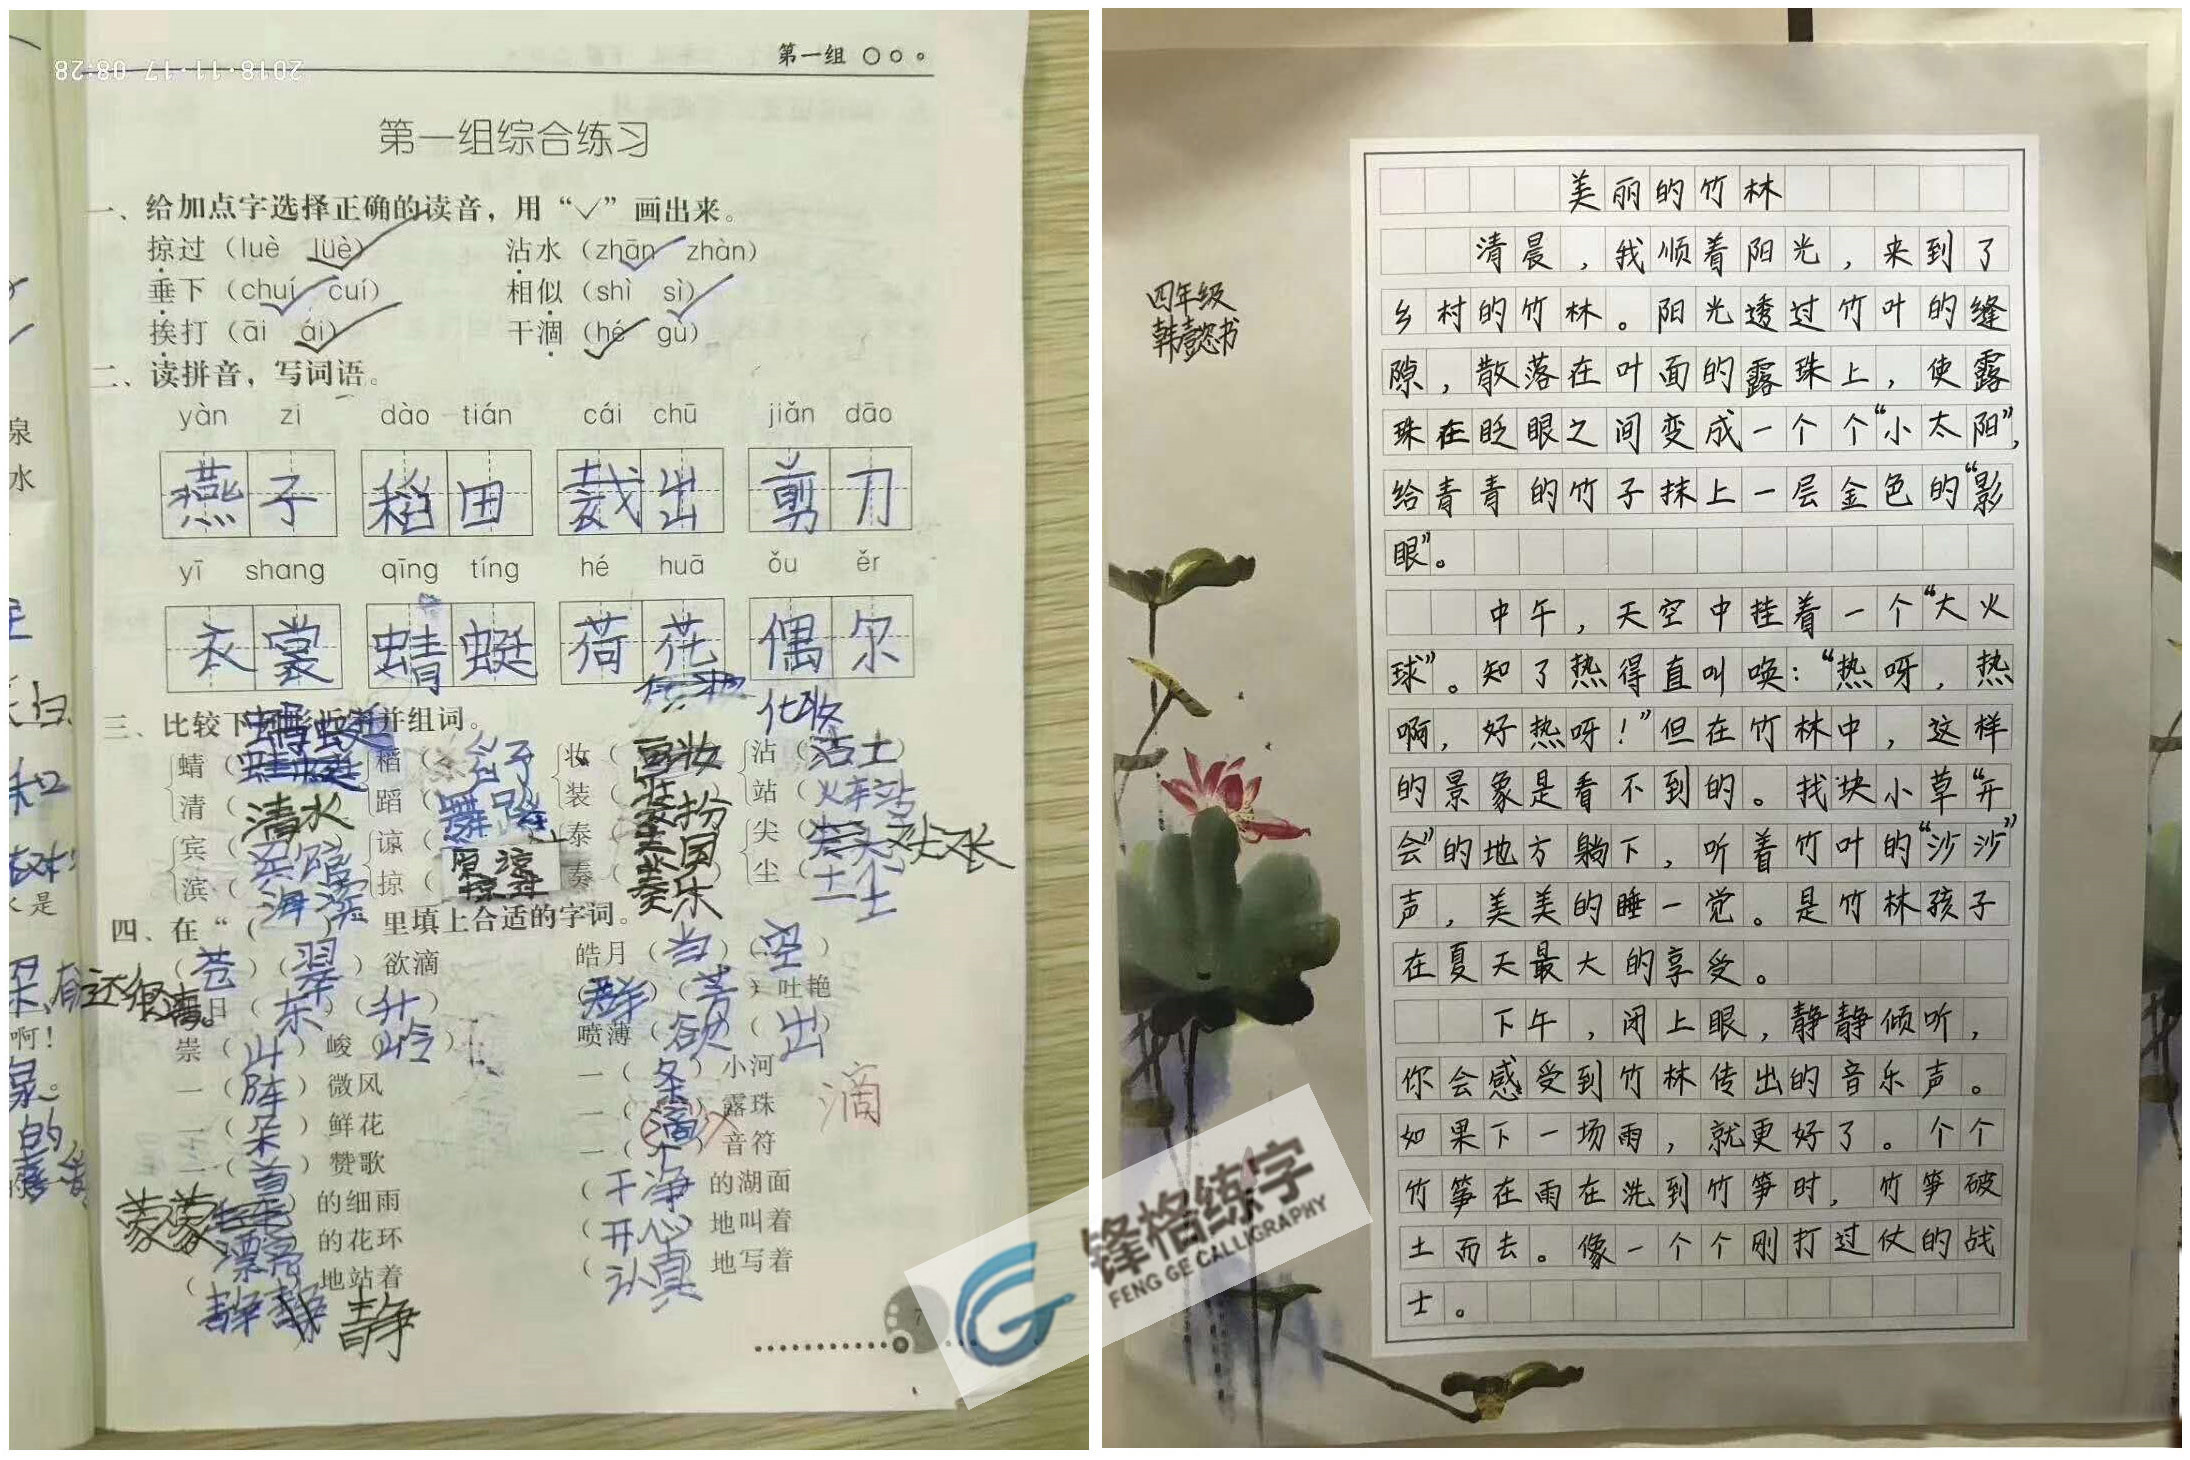 2018·11·17 08:28
第一组
第一组综合练习
一、给加点字选择正确的读音，用“✓”画出来。
掠过（luè lüè） 沾水（zhān zhàn）
垂下（chuí cuí） 相似（shì sì）
挨打（āi ái） 干涸（hé gù）
二、读拼音，写词语。
yàn zi dào tián cái chū jiǎn dāo
燕子 稻田 裁出 剪刀
yī shang qīng tíng hé huā ǒu ěr
衣裳 蜻蜓 荷花 偶尔
化妆
三、比较下 并组词。
蜻（ 稻（ 妆（画妆 沾（沾土）
清（清水 蹈（舞蹈 装（装扮 站（火车站
宾（宾馆 谅（原谅 泰（泰国 尖（
滨（海滨 掠（ 奏（奏乐 尘（尘土
四、在“（ ）里填上合适的字词。
（苍）（翠）欲滴 皓月（当）（空）
日（东）（升） （群）（芳）吐艳
崇（山）峻（岭） 喷薄（欲）（出）
一（阵）微风 一（条）小河
一（朵）鲜花 一（滴）露珠 滴
一（首）赞歌 一（个）音符
蒙蒙 的细雨 （干净 的湖面
漂亮 的花环 （开心）地叫着
（静静 地站着 （认真 地写着
静
7
四年级
韩懿书
美丽的竹林
清晨，我顺着阳光，来到了
乡村的竹林。阳光透过竹叶的缝
隙，散落在叶面的露珠上，使露
珠在眨眼之间变成一个个“小太阳”，
给青青的竹子抹上一层金色的“影
眼”。
中午，天空中挂着一个“大火
球”。知了热得直叫唤：“热呀，热
啊，好热呀！”但在竹林中，这样
的景象是看不到的。找块小草“开
会”的地方躺下，听着竹叶的“沙沙”
声，美美的睡一觉。是竹林孩子
在夏天最大的享受。
下午，闭上眼，静静倾听，
你会感受到竹林传出的音乐声。
如果下一场雨，就更好了。个个
竹笋在雨在洗到竹笋时，竹笋破
土而去。像一个个刚打过仗的战
士。
锋格练字
FENG GE CALLIGRAPHY